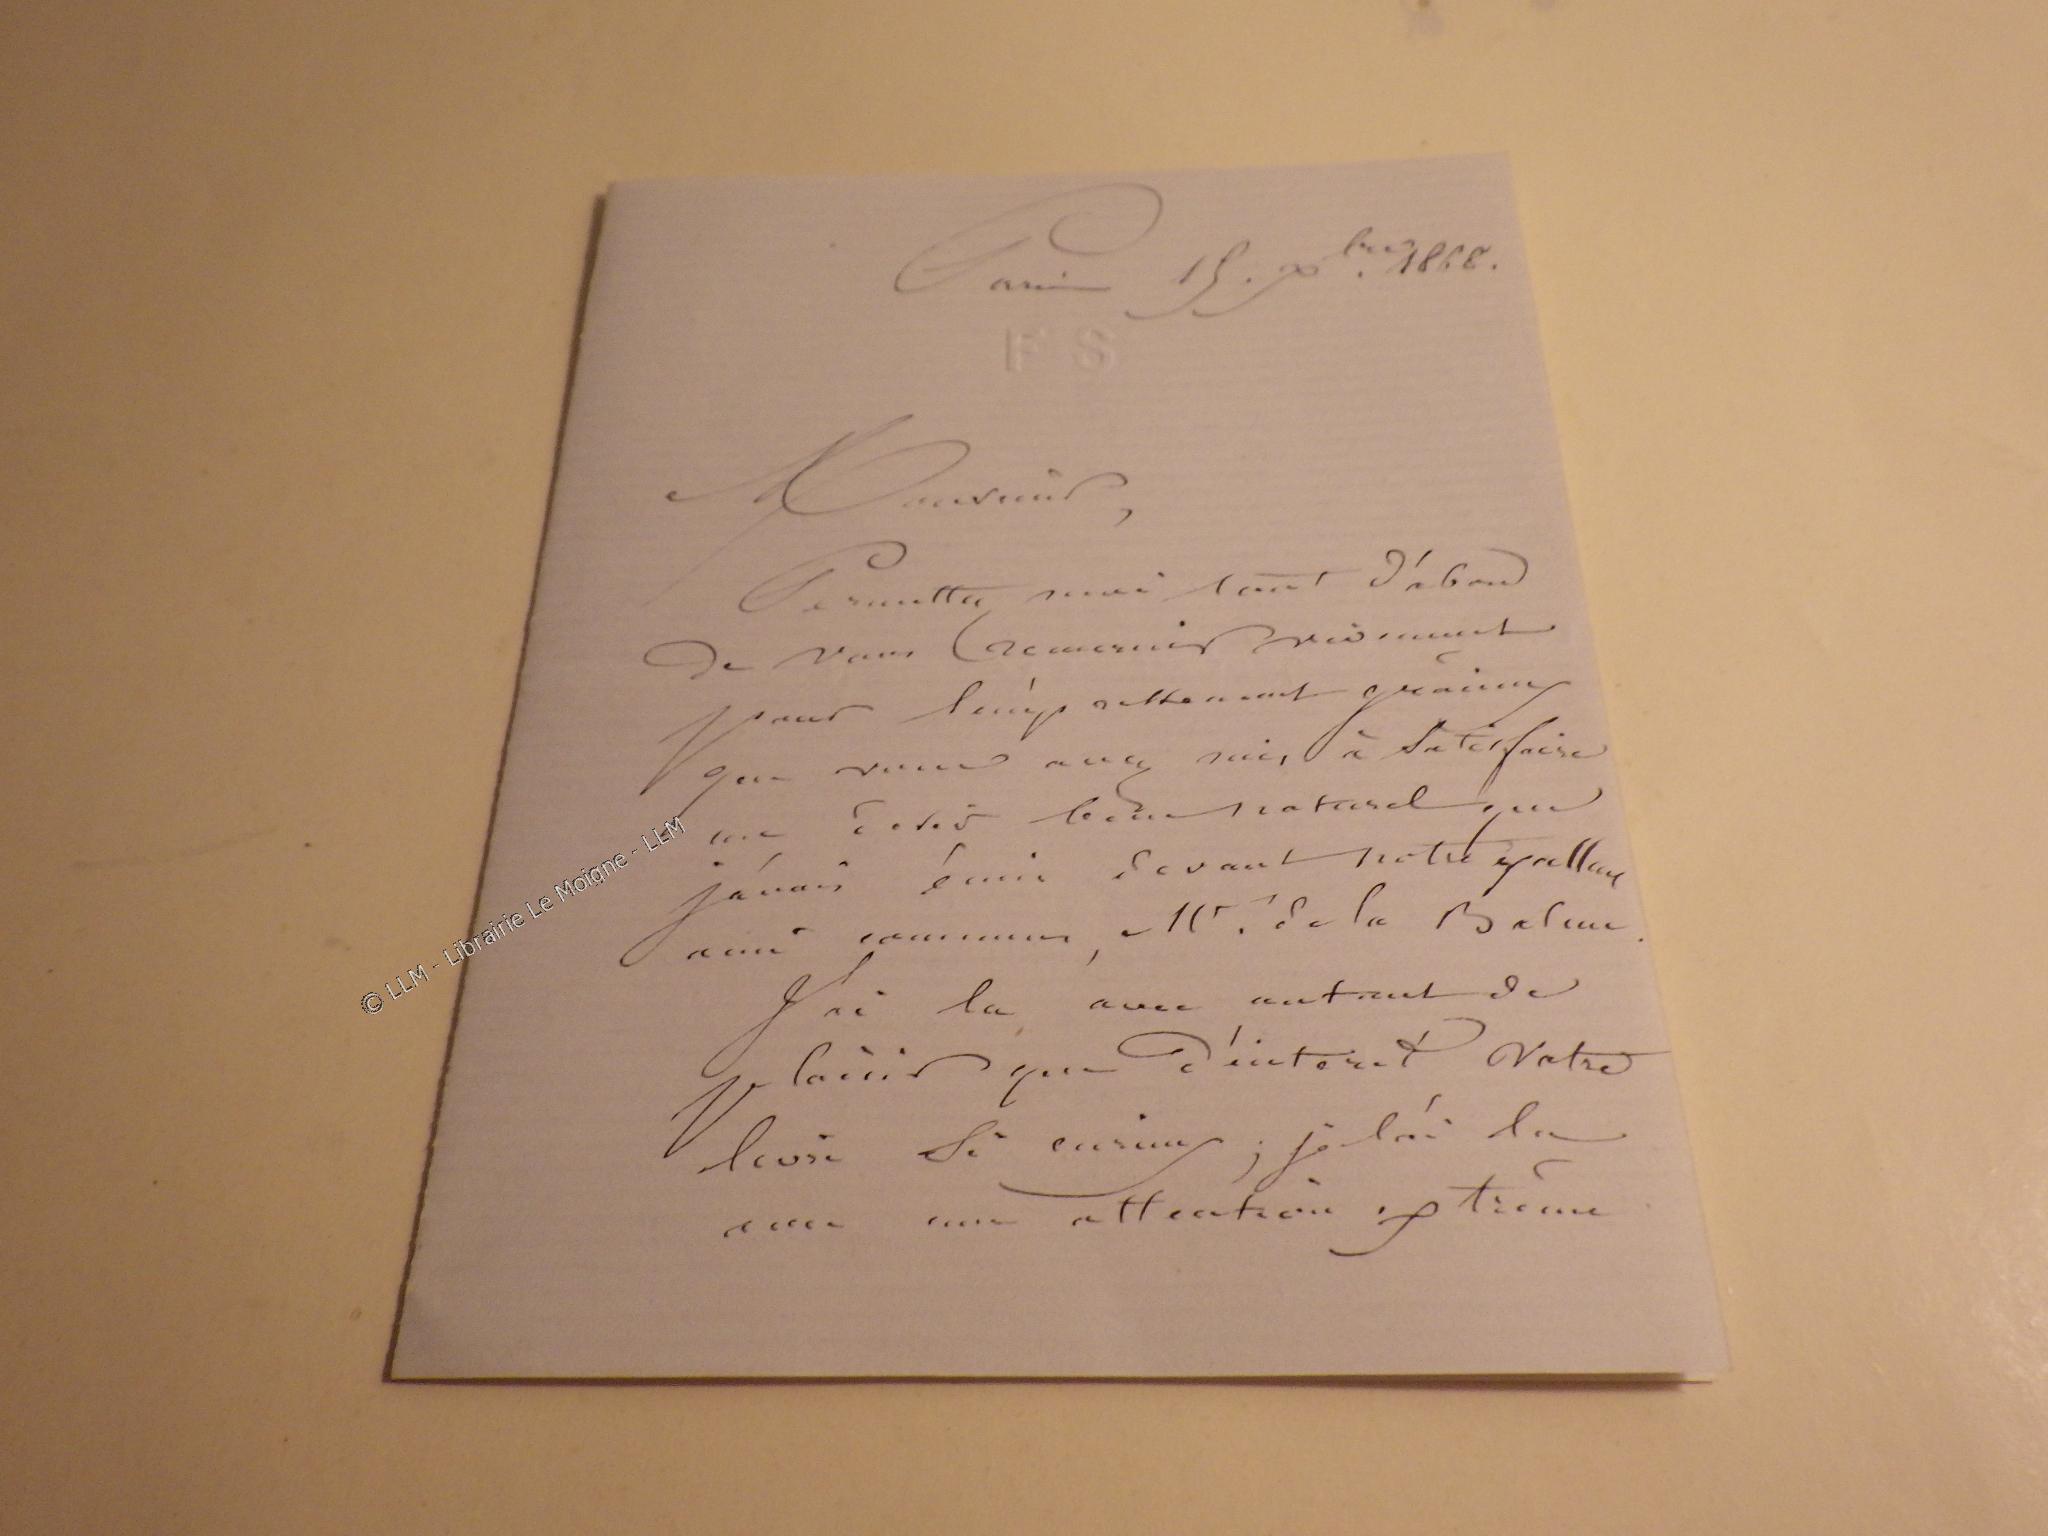 Paris 15. Xbre. 1868.
F S
Monsieur,
Permettez moi tout d'abord
de vous remercier vivement
pour l'empressement gracieux
que vous avez mis à satisfaire
un désir bien naturel que
j'avais émis devant notre excellent
ami commun, Mr. de la Balme.
J'ai lu avec autant de
plaisir que d'intérêt votre
livre si curieux ; je l'ai lu
avec une attention extrême
© LLM - Librairie Le Moigne - LLM